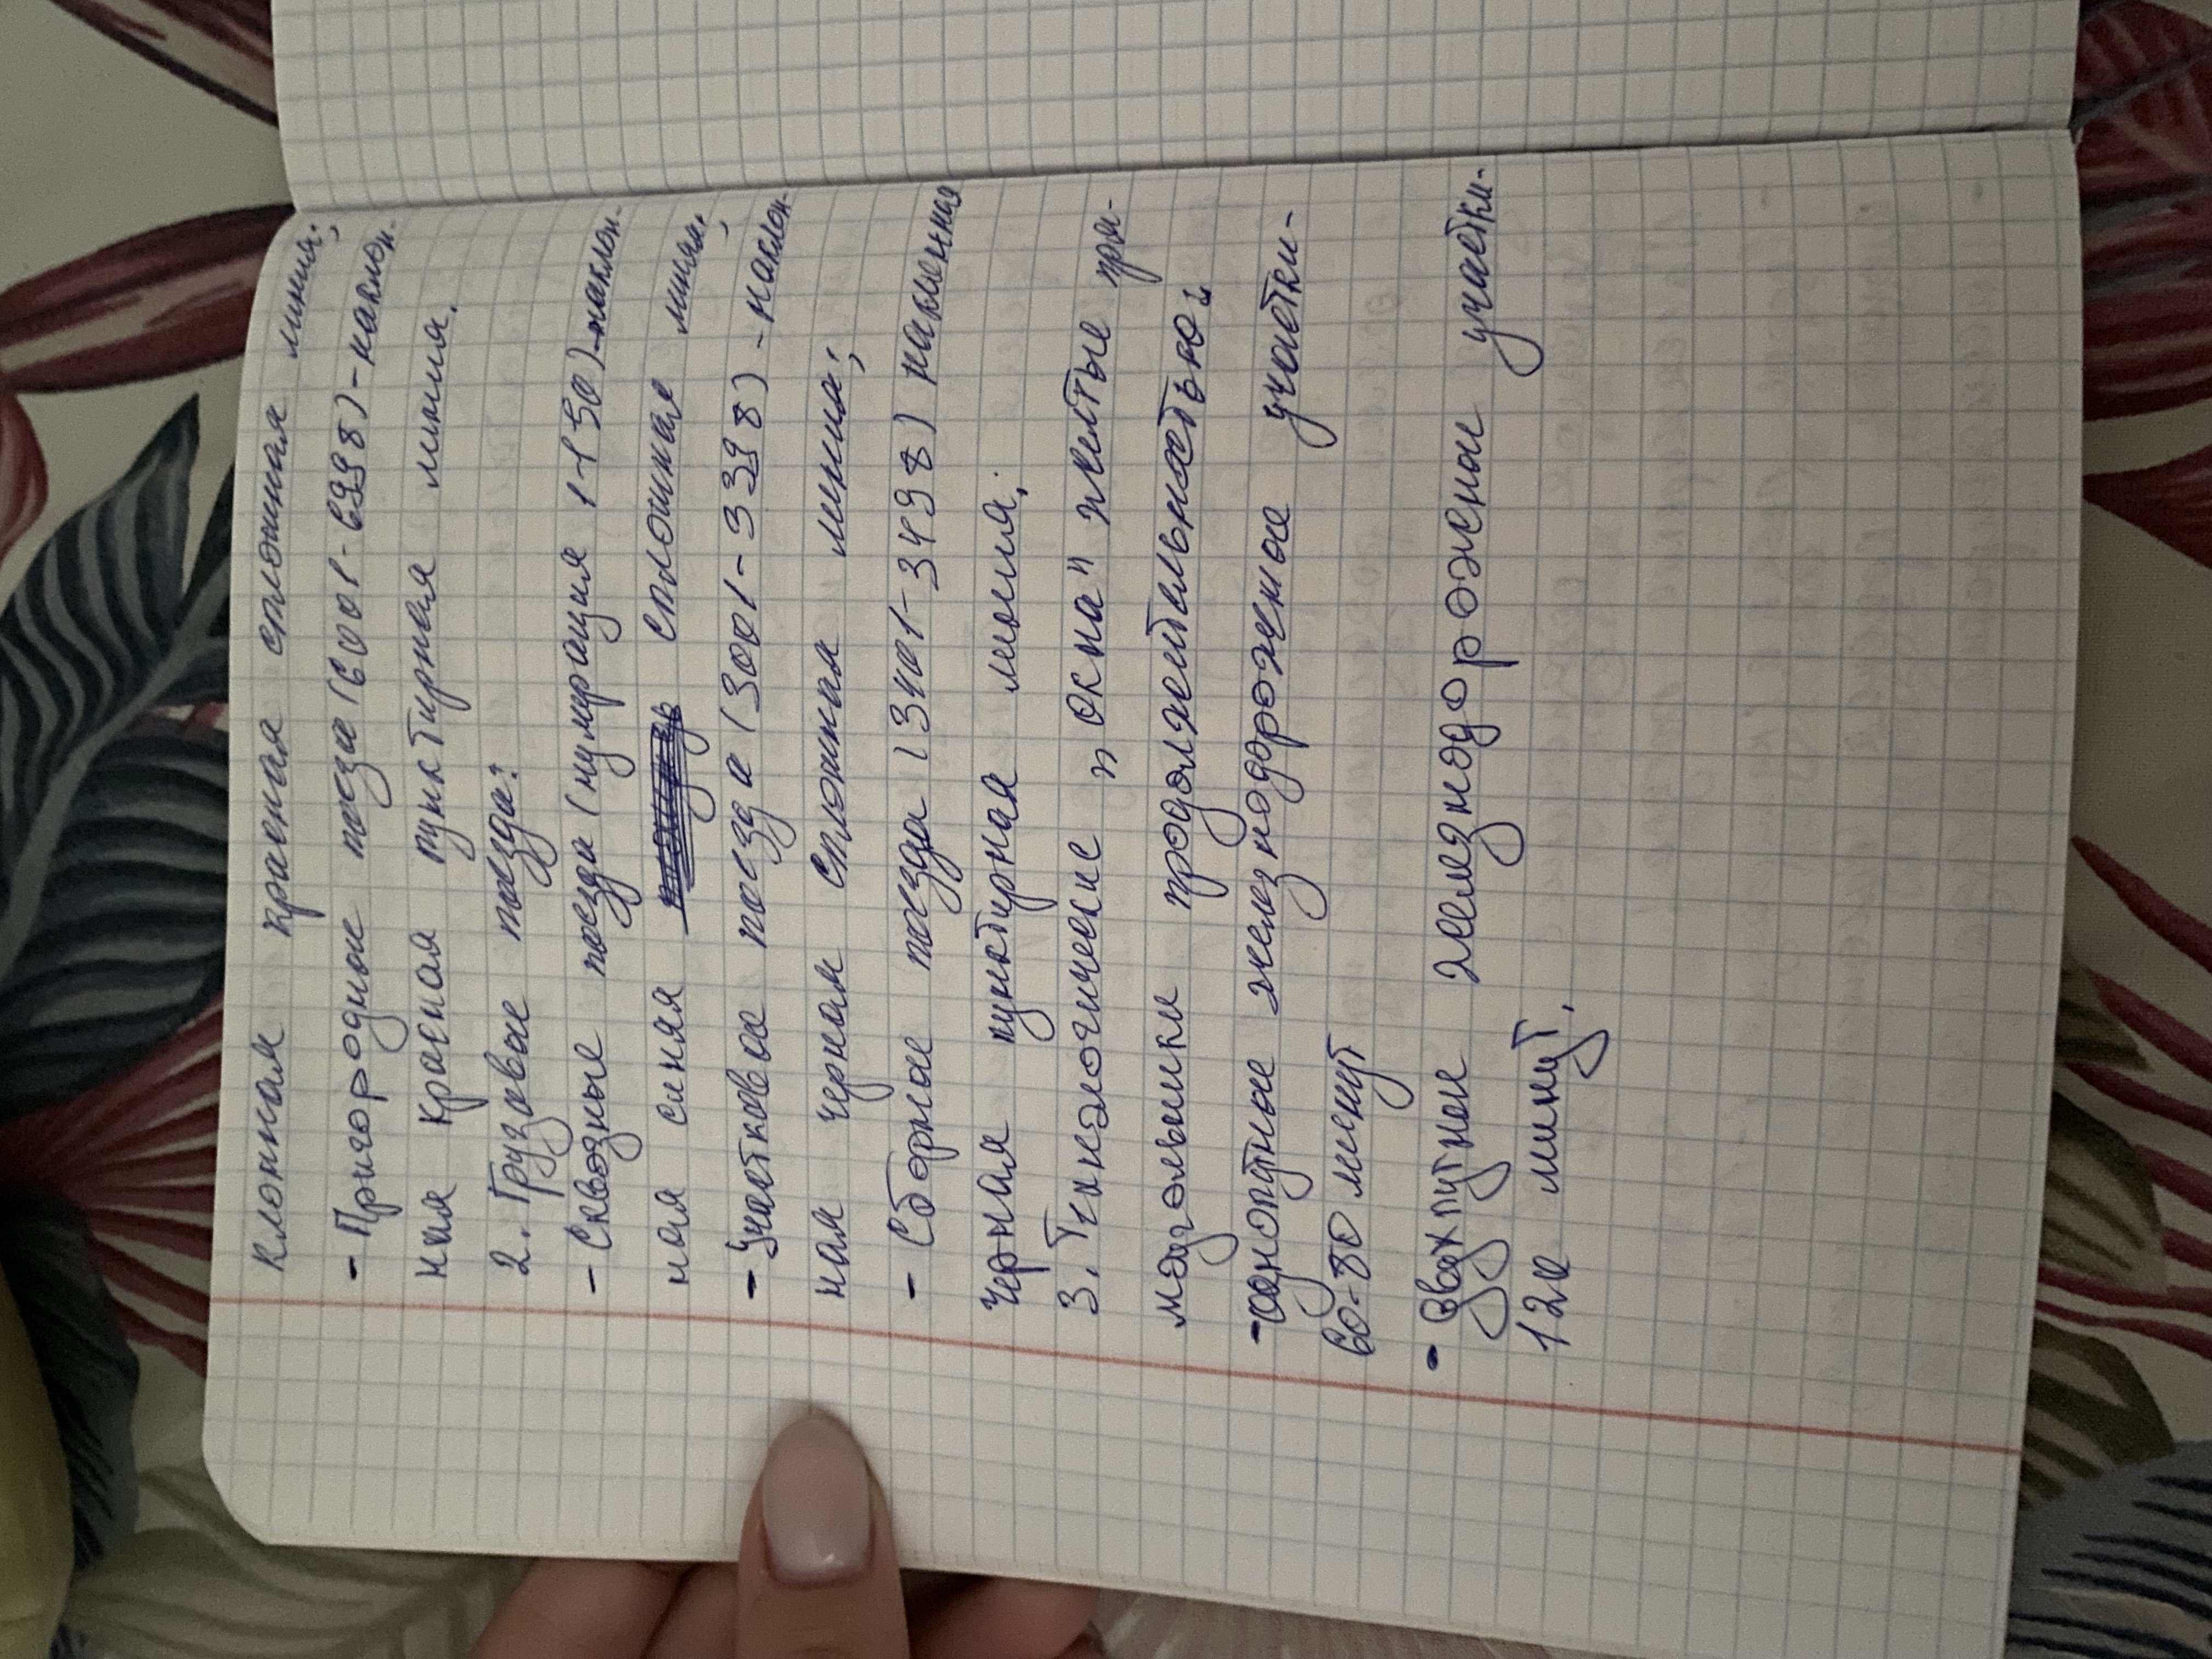 клонная красная сплошная линия;
- Пригородные поезда (6001-6998) - наклон-
ная красная пунктирная линия.
2. Грузовые поезда:
- Сквозные поезда (нумерация 1-150) - наклон-
ная синяя сплошная линия;
- Участковые поезда (3001-3398) - наклон-
ная черная сплошная линия;
- Сборные поезда (3401-3498) наклонная
черная пунктирная линия;
3. Технологические "окна" желтые пря-
моугольники продолжительностью:
- однопутные железнодорожные участки -
60-80 минут
- двухпутные железнодорожные участки -
120 минут.